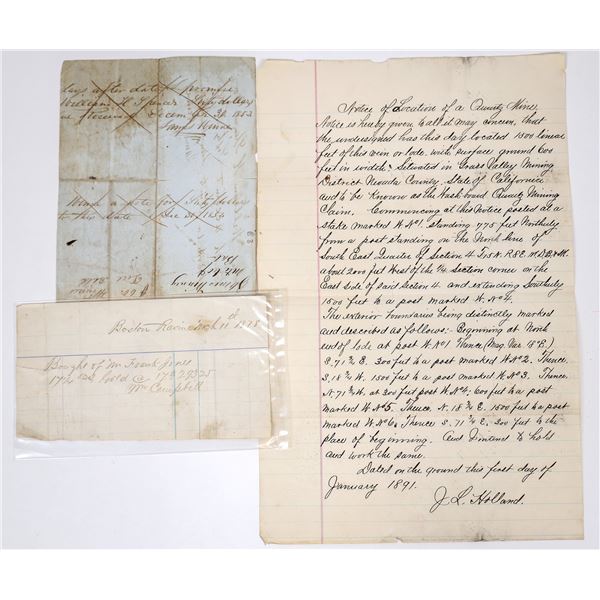 days after date I promise
William H. Spencer Fifty dollars
December 31 1853
James Winne
a note for fifty dollars
to this date Dec 31 1854
Boston Ravine March 11th 1878
Bought of Mr Frank Jones
gold @
Wm Campbell
Notice of Location of a Quartz Mine.
Notice is hereby given to all it may concern, that
the undersigned has this day located 1500 lineal
feet of this vein or lode, with surface ground 600
feet in width. Situated in Grass Valley Mining
District Nevada County. State of California
and to be Known as the Wash board Quartz Mining
Claim. Commencing at this Notice posted at a
stake marked H. No1. Standing 775 feet Northerly
from a post standing on the North line of
South East Quarter of Section 4 R8E. M.D.B.&M.
about 2000 feet West of the 1/4 section corner on the
East side of said Section 4. and extending Southerly
1500 feet to a post marked H. No4.
The exterior boundaries being distinctly marked
and described as follows: Beginning at North
end of lode at post No1 Thence (Mag. Var.
S. 71 3/4 E. 300 feet to a post marked H. No2. Thence.
S. 18 1/4 W. 1500 feet to a post marked H. No3. Thence
N. 71 3/4 W. at 300 feet post H. No4; 600 feet to a post
marked H. No5. Thence. N. 18 1/4 E. 1500 feet to a post
marked H. No6; Thence S. 71 3/4 E. 300 feet to the
place of beginning. And I intend to hold
and work the same.
Dated on the ground this first day of
January 1891.
J. L. Holland.